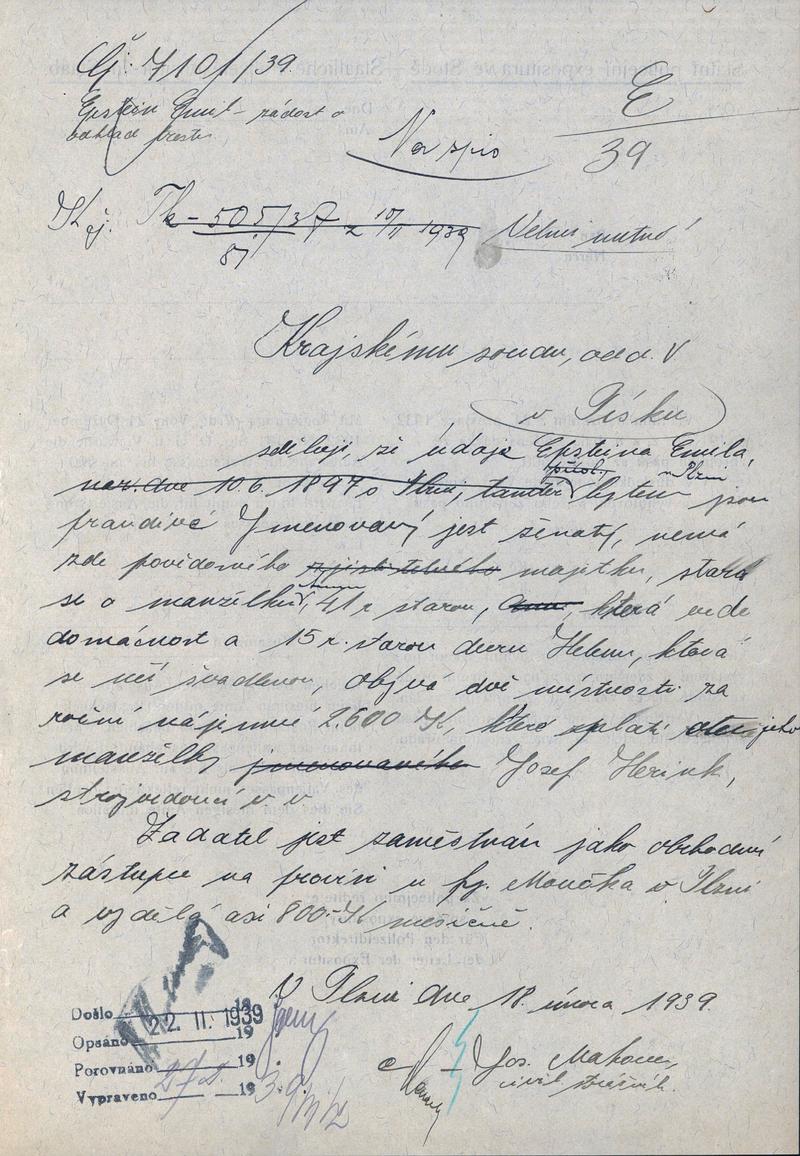 Čj: 7101/39
Epstein Emil - žádost o
odklad trestu
Na spis
E
39
Tk - 505/37 z 10/II 1939 Velmi nutné!
87
Krajskému soudu, odd. V
v Písku
sděluji, že údaje Epsteina Emila,
přísl. v Plzni
nar. dne 10.6. 1897 v Plzni, tamtéž bytem jsou
pravdivé. Jmenovaný jest ženatý, nemá
zde povědomého zjistitelného majetku, stará
se o manželku, 41 r. starou, která vede
domácnost a 15 r. starou dceru Helenu, která
se učí švadlenou, obývá dvě místnosti za
roční nájemné 2.600 K, které zplatí otec jeho
manželky jmenovaného Josef Herink,
strojvedoucí v. v.
Žadatel jest zaměstnán jako obchodní
zástupce na provisi u fy. Moučka v Plzni
a vydělá asi 800.- K měsíčně.
V Plzni dne 18. února 1939.
Jos.
civil strážník.
Došlo 22. II. 1939
Opsáno 19
Porovnáno 19
Vypraveno 19